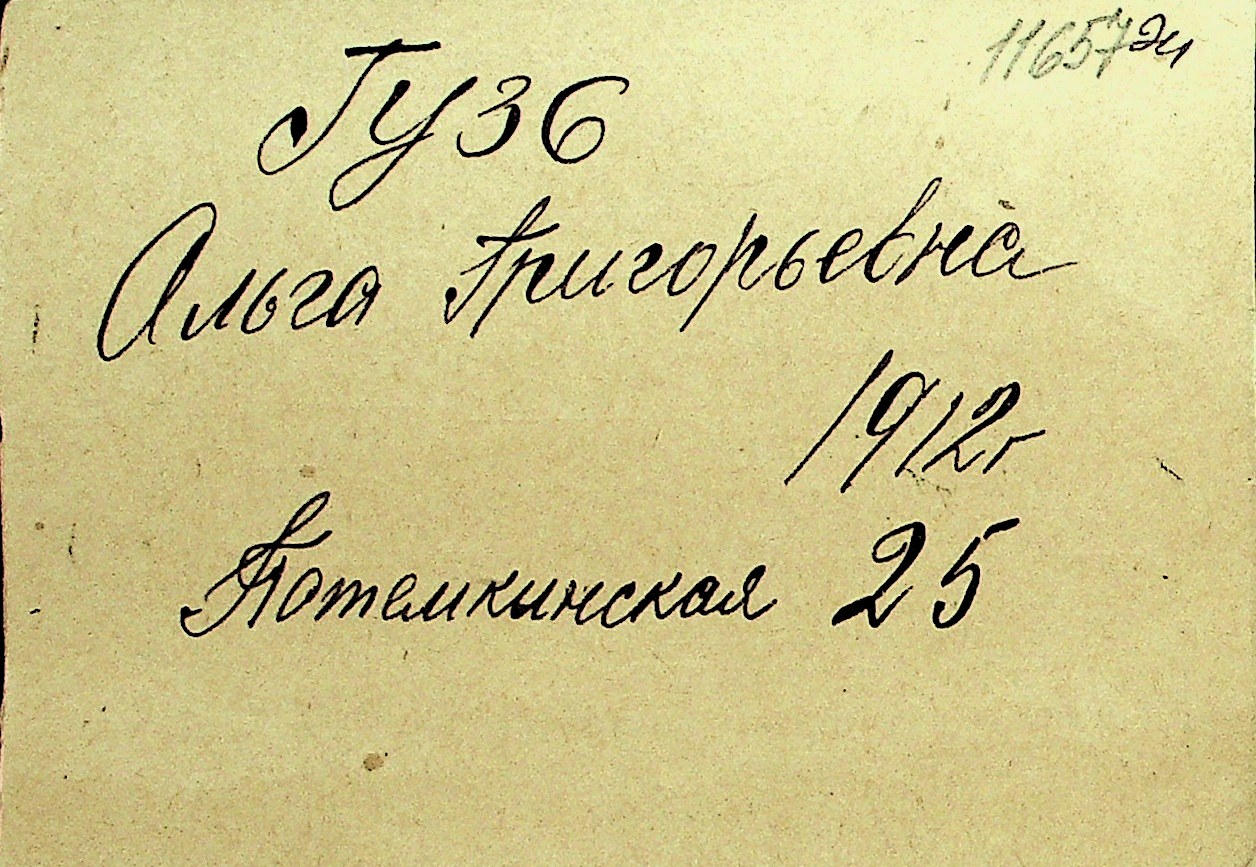 11657эи
Гузь
Ольга Григорьевна
1912г
Потемкинская 25